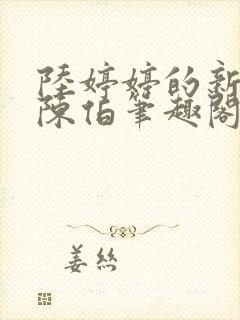 陸婷婷的新
陳伯筆趣閣
姜絲